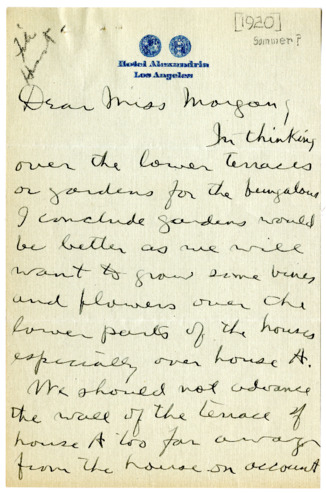 [1920]
Summer?
Hotel Alexandria
Los Angeles
Dear Miss Morgan,
In thinking
over the lower terraces
or gardens for the bungalows
I conclude gardens would
be better as we will
want to grow some vines
and flowers over the
lower parts of the houses
especially over house A.
We should not advance
the wall of the terrace of
house A too far away
from the house on account